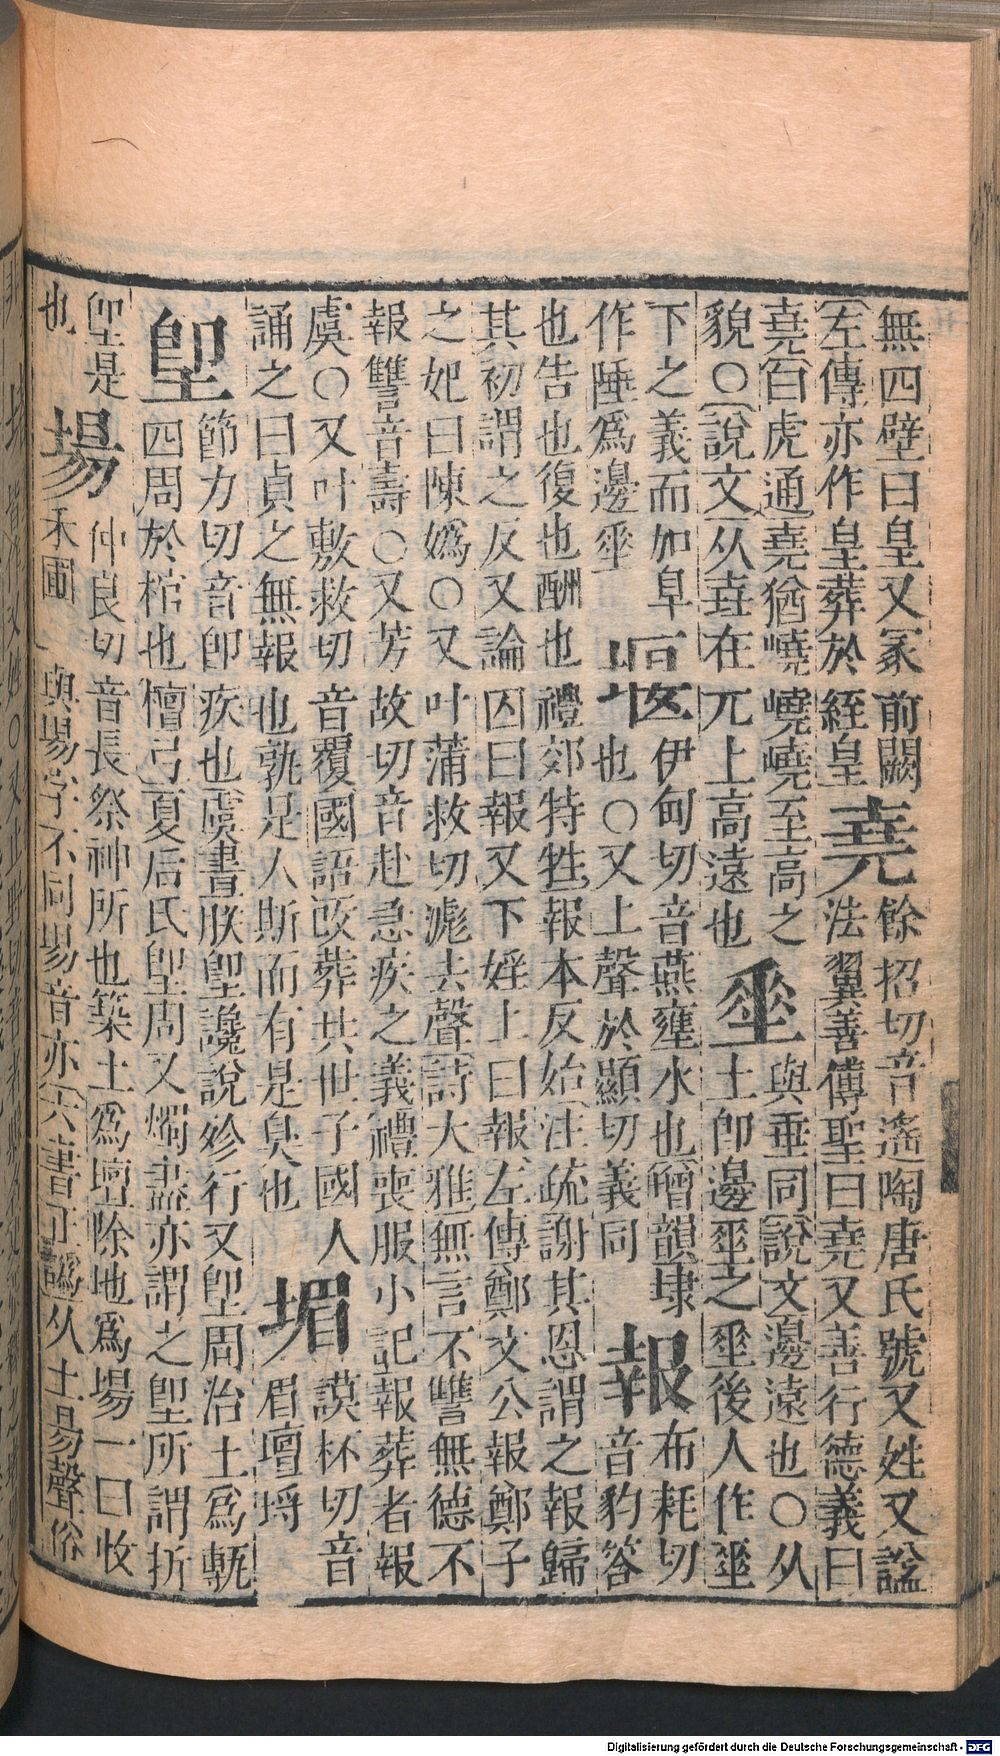 無四壁曰皇又冢前闕
左傳亦作皇葬於絰皇
堯
餘招切音遙陶唐氏號又姓又諡
法翼善傳聖曰堯又善行德義曰
堯白虎通堯猶嶢嶢嶢至高之
貌〇說文从垚在兀上高遠也
垂
與垂同說文邊遠也〇从
土卽邊垂之垂後人作垂
下之義而如阜
作陲爲邊垂
堰
伊甸切音燕壅水也增韻埭
也〇又上聲於顯切義同
報
布耗切
音豹答
也告也復也酬也禮郊特牲報本反始注疏謝其恩謂之報歸
其初謂之反又論囚曰報又下婬上曰報左傳鄭文公報鄭子
之妃曰陳嬀〇又叶蒲救切滮去聲詩大雅無言不讐無德不
報讐音壽〇又芳故切音赴急疾之義禮喪服小記報葬者報
虞〇又叶敷救切音覆國語改葬共世子國人
誦之曰貞之無報也孰是人斯而有是臭也
堳
謨杯切音
眉壇埒
堲
節力切音卽疾也虞書朕堲讒說殄行又堲周治土爲甎
四周於棺也檀弓夏后氏堲周又燭盡亦謂之堲所謂折
堲是
也
場
仲良切音長祭神所也築土爲壇除地爲場一曰收
禾圃與場字不同場音亦六書正譌从土昜聲俗
Digitalisierung gefördert durch die Deutsche Forschungsgemeinschaft - DFG